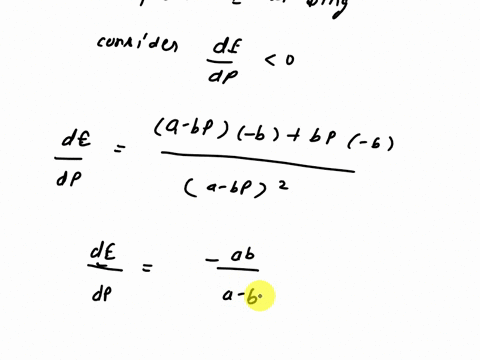 consider dE/dP < 0
dE/dP = (a-bP)(-b) + bP(-b) / (a-bP)2
dE/dP = -ab / a-b